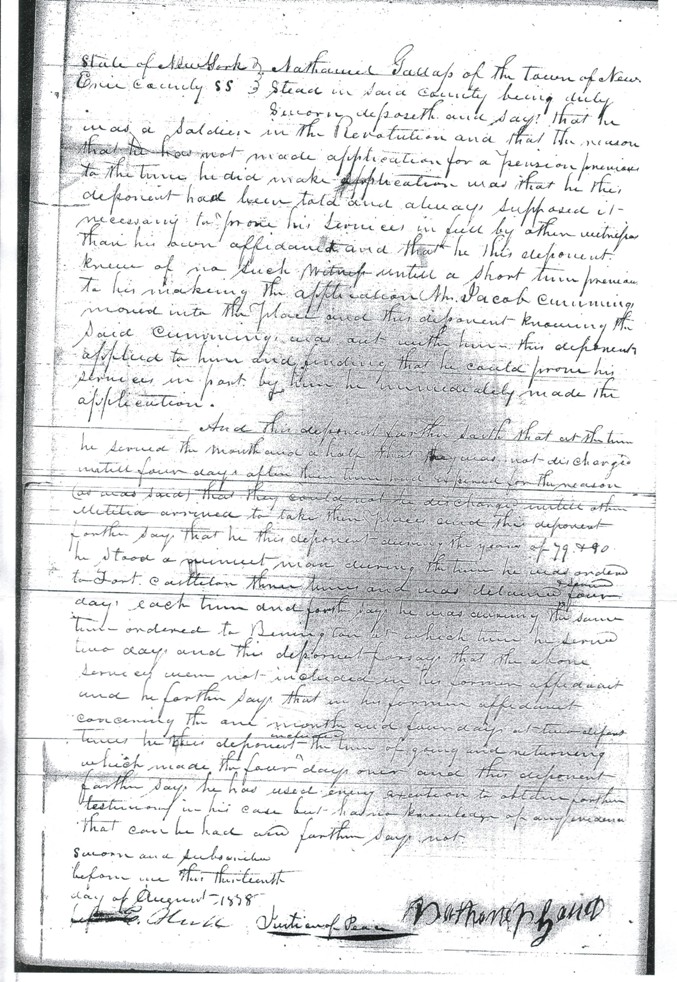 State of New York } Nathaniel Gallap of the Town of New
Erie County SS } Stead in said County being duly
Sworn deposeth and says that he
was a Soldier in the Revolution and that the reason
that he has not made application for a pension previous
to the time he did make application was that he this
deponent had been told and always supposed it
necessary to prove his services in full by other witnesses
than his own affidavit and that he this deponent
knew of no such witness untill a short time previous
to his makeing the application Mr. Jacob Cummings
moved into the place and this deponent knowing the
said Cummings was out with him this deponent
applied to him and finding that he could prove his
services in part by him he immediately made the
application.
And this deponent farther saith that at the time
he served the month and a half that he was not discharged
untill four days after their time had expired for the reason
(as was said) that they could not be discharged untill other
Melitia arrived to take their place and this deponent
farther says that he this deponent during the years of 79 & 80
he stood a minuet man during the time he was ordered
to Fort Castleton three times and was detained & served four
days each time and farther says he was during the same
time ordered to Bennington at which time he served
two days and this deponent says that the above
services were not included in his former affidavit
and he farther says that in his former affidavit
concerning the one month and four days at two different
times he this deponent included the time of going and returning
which made the four days over and this deponent
farther says he has used every exertion to obtain farther
testimony in his case but has no knowledge of any evidence
that can be had and farther says not
Sworn and subscribed
before me this thirteenth
day of August 1838
Justice of Peace Nathaniel Gallap